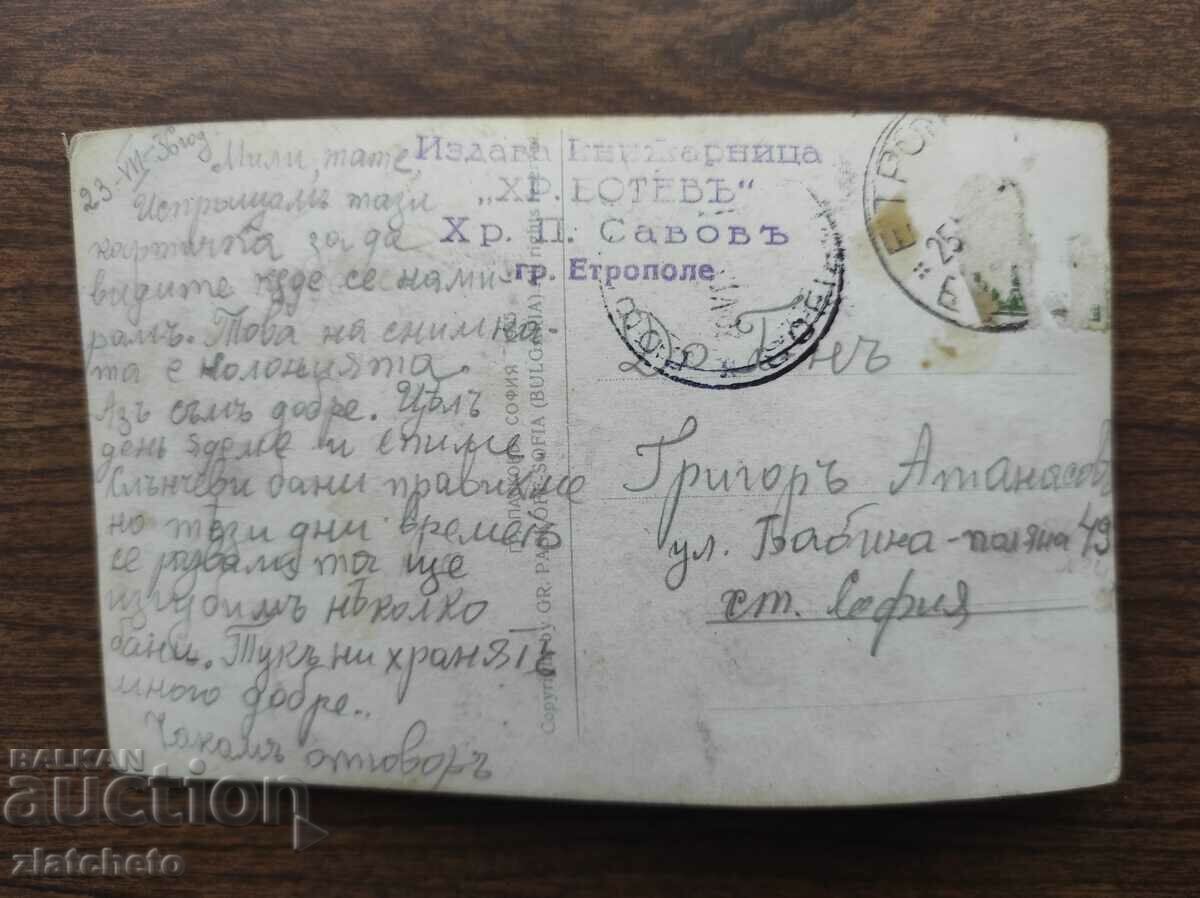 23-VII-36 год
Мили, тате,
Испрыщамъ тази
картичка за да
видите кѫде се нами-
рамъ. Това на снимка-
та е колонията.
Азъ съмъ добре. Цѣлъ
день ядеме и спиме
Слънчеви бани правихме
но тѣзи дни времето
се развали та ще
изгубимъ нѣколко
бани. Тукъ ни хранятъ
много добре..
Чакамъ отговоръ
Издава Книжарница
„ХР. БОТЕВЪ“
Хр. П. Савовъ
гр. Етрополе
ЕТРОПО
25
СОФИЯ
Copyright by GR. PASKOFF SOFIA (BULGARIA) All rights reserved
Гр. ПАСКОВЪ, СОФИЯ
До Г-нъ
Григоръ Атанасовъ
ул. Бабина-поляна 49
ст. София
BALKAN
auction
zlatcheto